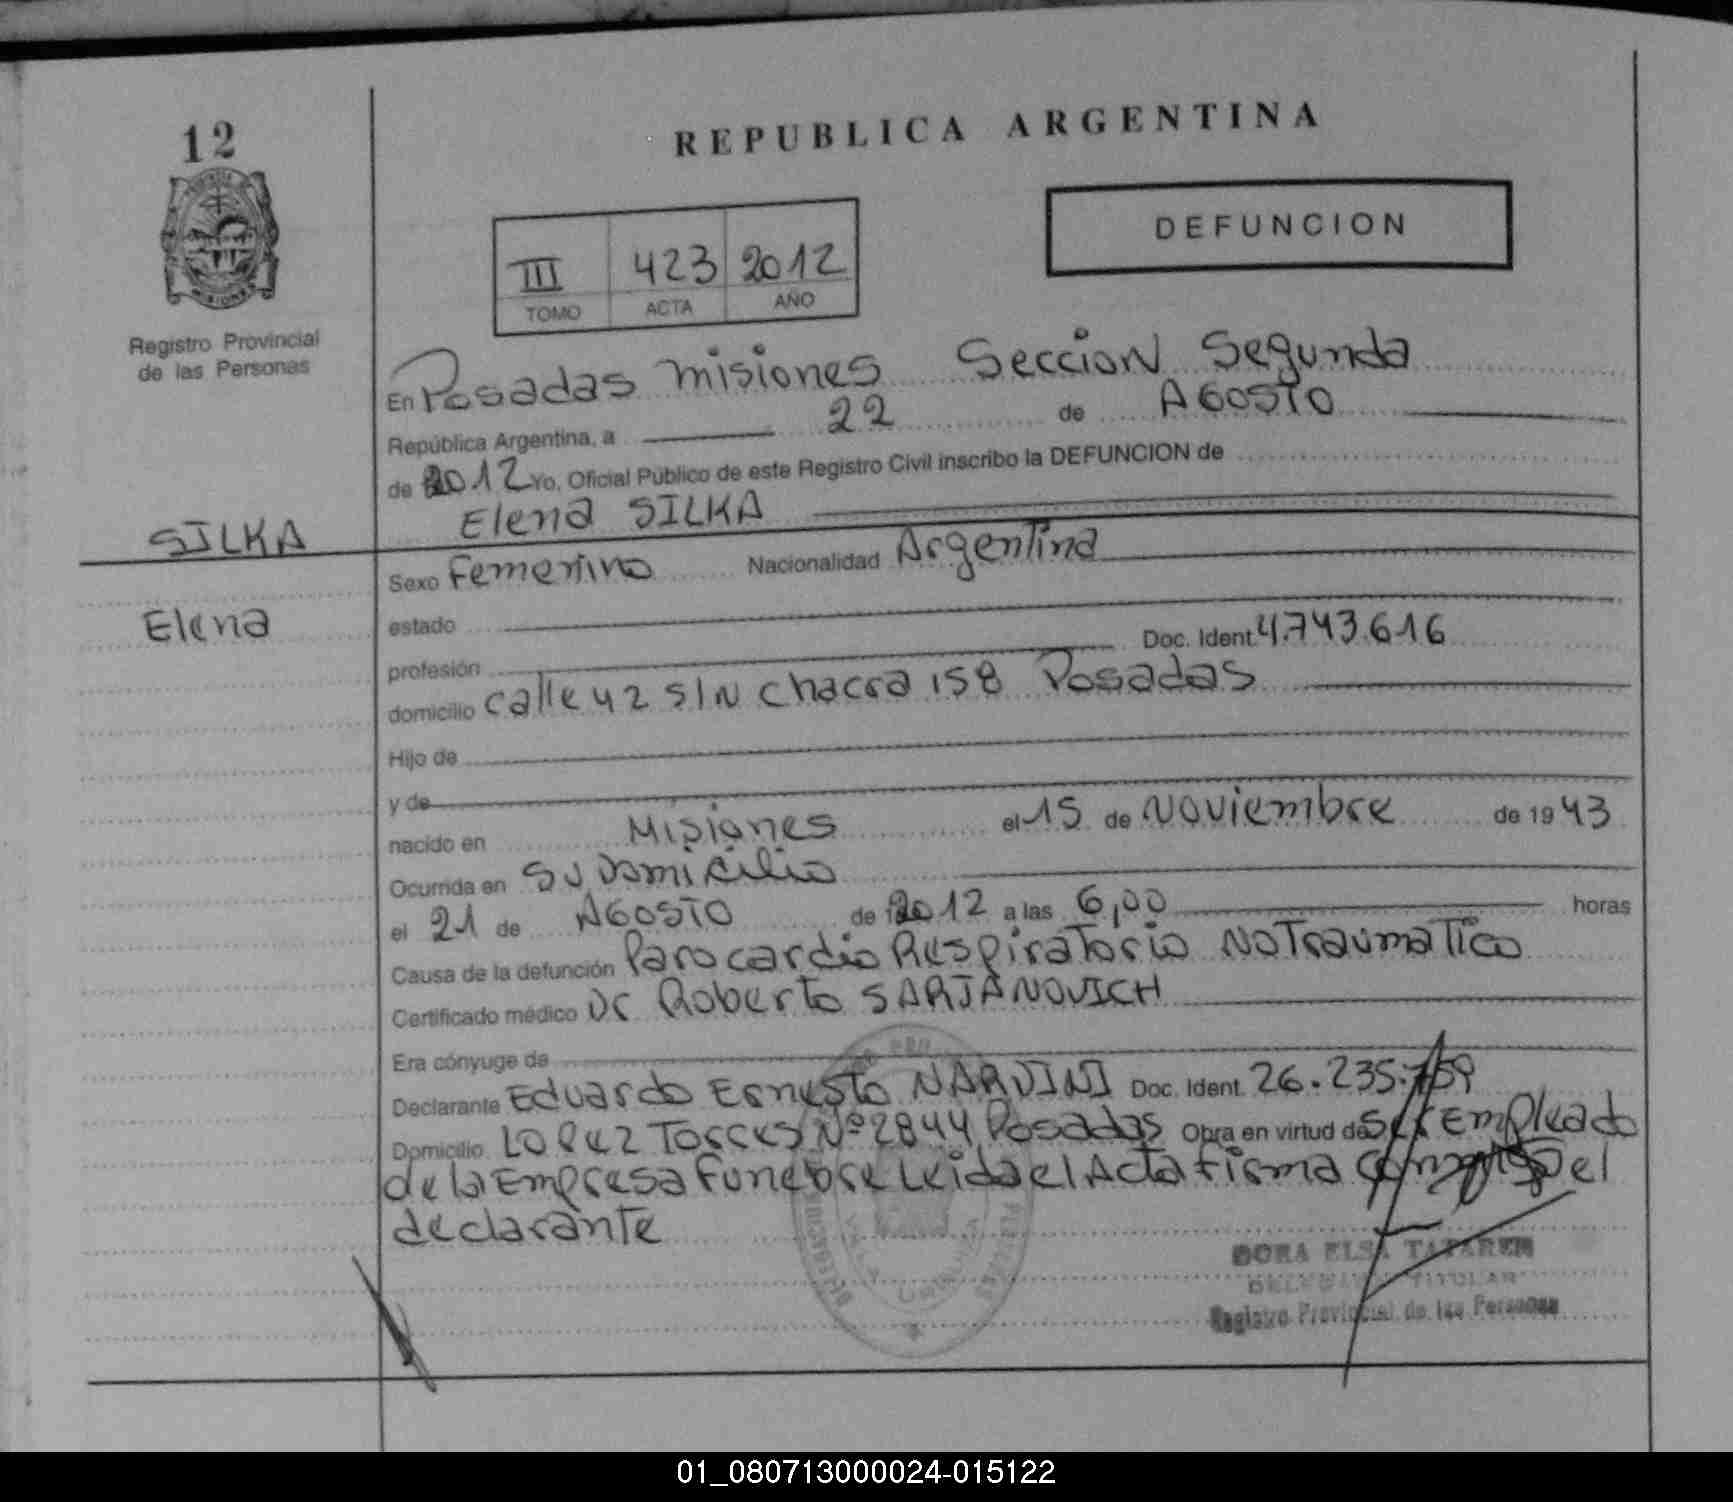 12
REPUBLICA ARGENTINA
DEFUNCION
III 423 2012
TOMO ACTA AÑO
Registro Provincial
de las Personas
En Posadas Misiones Seccion Segunda
República Argentina, a 22 de AGOSTO
de 2012 Yo, Oficial Público de este Registro Civil inscribo la DEFUNCION de
Elena SILKA
SILKA
Elena
Sexo Femenino Nacionalidad Argentina
estado
profesión Doc. Ident. 4.743.616
domicilio Calle 42 S/N Chacra 158 Posadas
Hijo de
y de
nacido en Misiones el 15 de Noviembre de 1943
Ocurrida en Su Domicilio
el 21 de AGOSTO de 2012 a las 6,00 horas
Causa de la defunción Paro cardio Respiratorio No Traumatico
Certificado médico Dr Roberto SARJANOVICH
Era cónyuge de
Declarante Eduardo Ernesto NARVINI Doc. Ident. 26.235.759
Domicilio LOPEZ Torres Nº 2844 Posadas Obra en virtud de Ser Empleado
de la Empresa Funebre Leida el Acta Firma el
declarante
DORA ELSA
DELEGADA TITULAR
Registro Provincial de las Personas
01_080713000024-015122